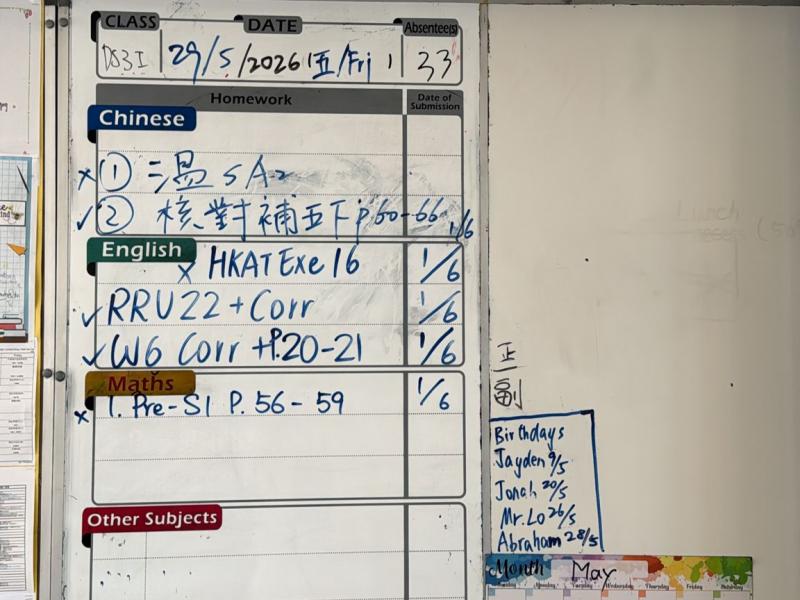 CLASS DATE Absentee(s)
DS3I 29/5/2026 五/Fri 33
Homework Date of Submission
Chinese
x ① 温 5A2
✓ ② 核對補五下 P.60-66 1/6
English
x HKAT Exe 16 1/6
✓ RRU22 + Corr 1/6
✓ W6 Corr + P.20-21 1/6
Maths
x 1. Pre-S1 P. 56 - 59 1/6
Other Subjects
正
副
Birthdays
Jayden 9/5
Jonah 20/5
Mr. Lo 26/5
Abraham 28/5
Month May
Lunch